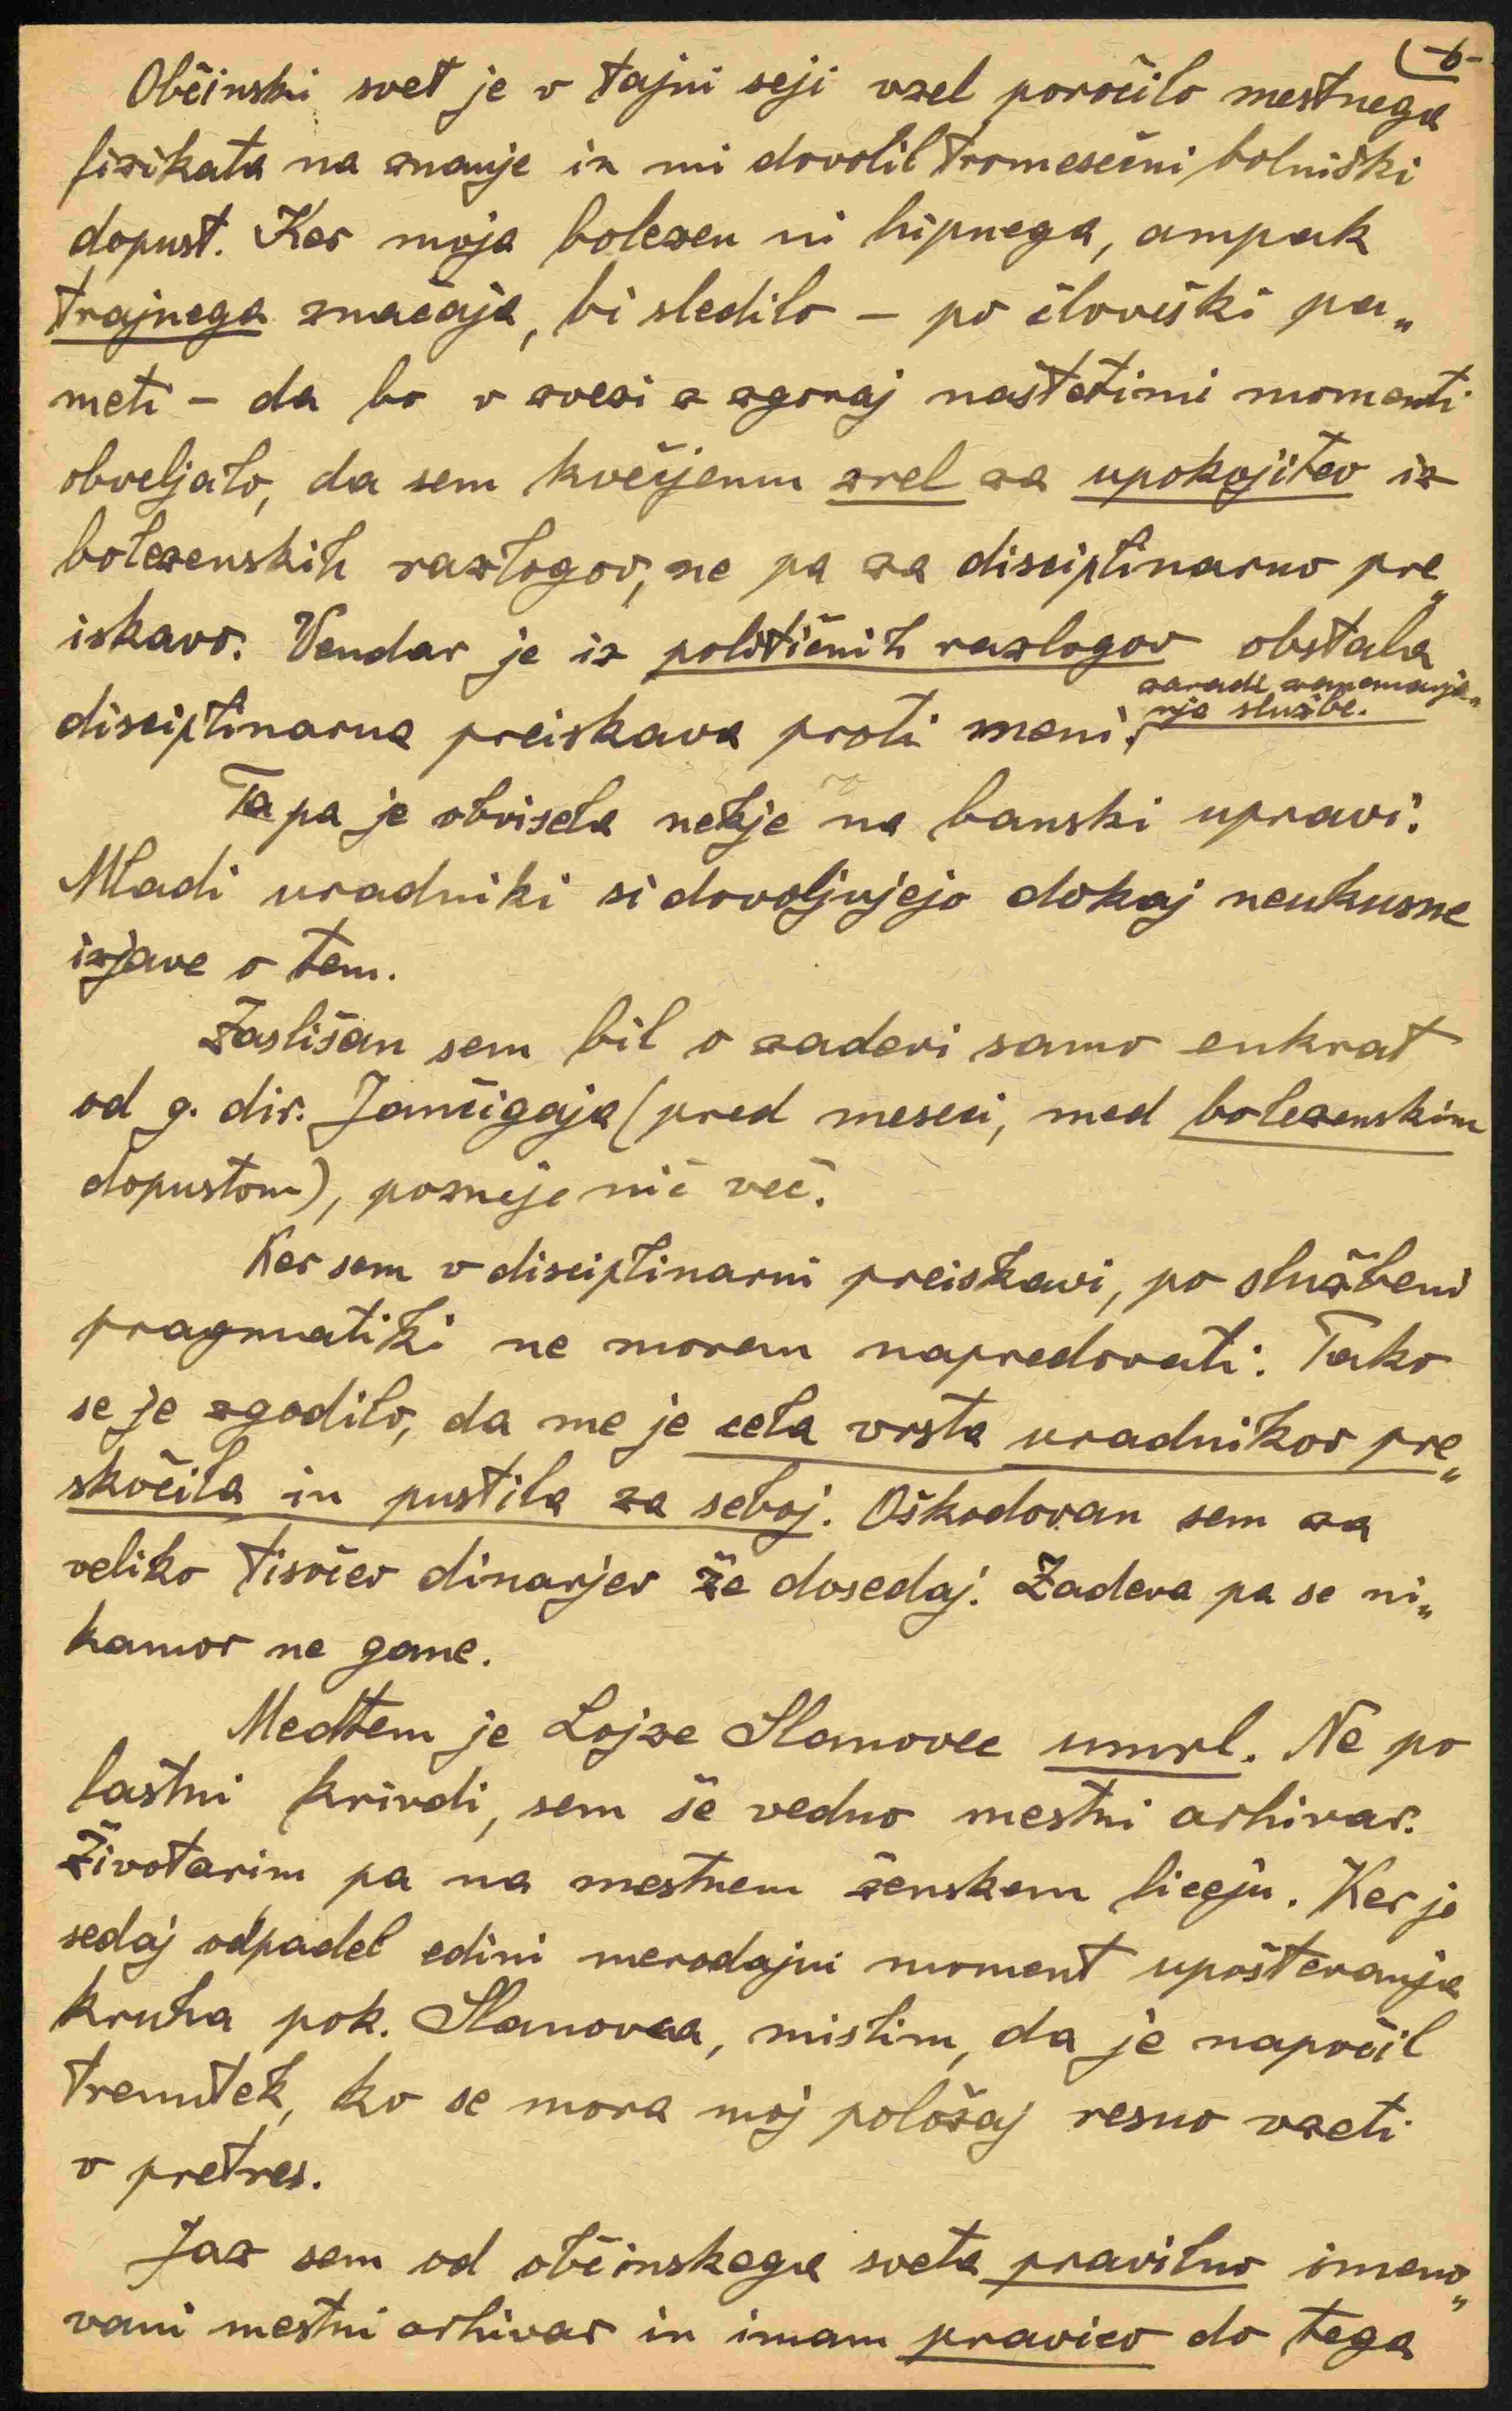 -6-
Občinski svet je v tajni seji vzel poročilo mestnega
fizikata na znanje in mi dovolil tromesečni bolniški
dopust. Ker moja bolezen ni hipnega, ampak
trajnega značaja, bi sledilo – po človeški pa„
meti – da bo v zvezi z zgoraj naštetimi momenti
obveljalo, da sem kvečjemu zrel za upokojitev iz
bolezenskih razlogov, ne pa za disciplinarno pre„
iskavo. Vendar je iz političnih razlogov obstala
zaradi zanemarja„
nja službe.
disciplinarna preiskava proti meni.
Ta pa je obvisela nekje na banski upravi.
Mladi uradniki si dovoljujejo dokaj neukusne
izjave o tem.
Zaslišan sem bil o zadevi samo enkrat
od g. dir. Jančigaja (pred meseci, med bolezenskim
dopustom), pozneje nič več.
Ker sem v disciplinarni preiskavi, po službeni
pragmatiki ne morem napredovati. Tako
se je zgodilo, da me je cela vrsta uradnikov pre„
skočila in pustila za seboj. Oškodovan sem za
veliko tisočev dinarjev že dosedaj. Zadeva pa se ni„
kamor ne gane.
Medtem je Lojze Slanovec umrl. Ne po
lastni krivdi, sem še vedno mestni arhivar.
Životarim pa na mestnem ženskem liceju. Ker je
sedaj odpadel edini merodajni moment upoštevanja
kruha pok. Slanovca, mislim, da je napočil
trenutek, ko se mora moj položaj resno vzeti
v pretres.
Jaz sem od občinskega sveta pravilno imeno„
vani mestni arhivar in imam pravico do tega